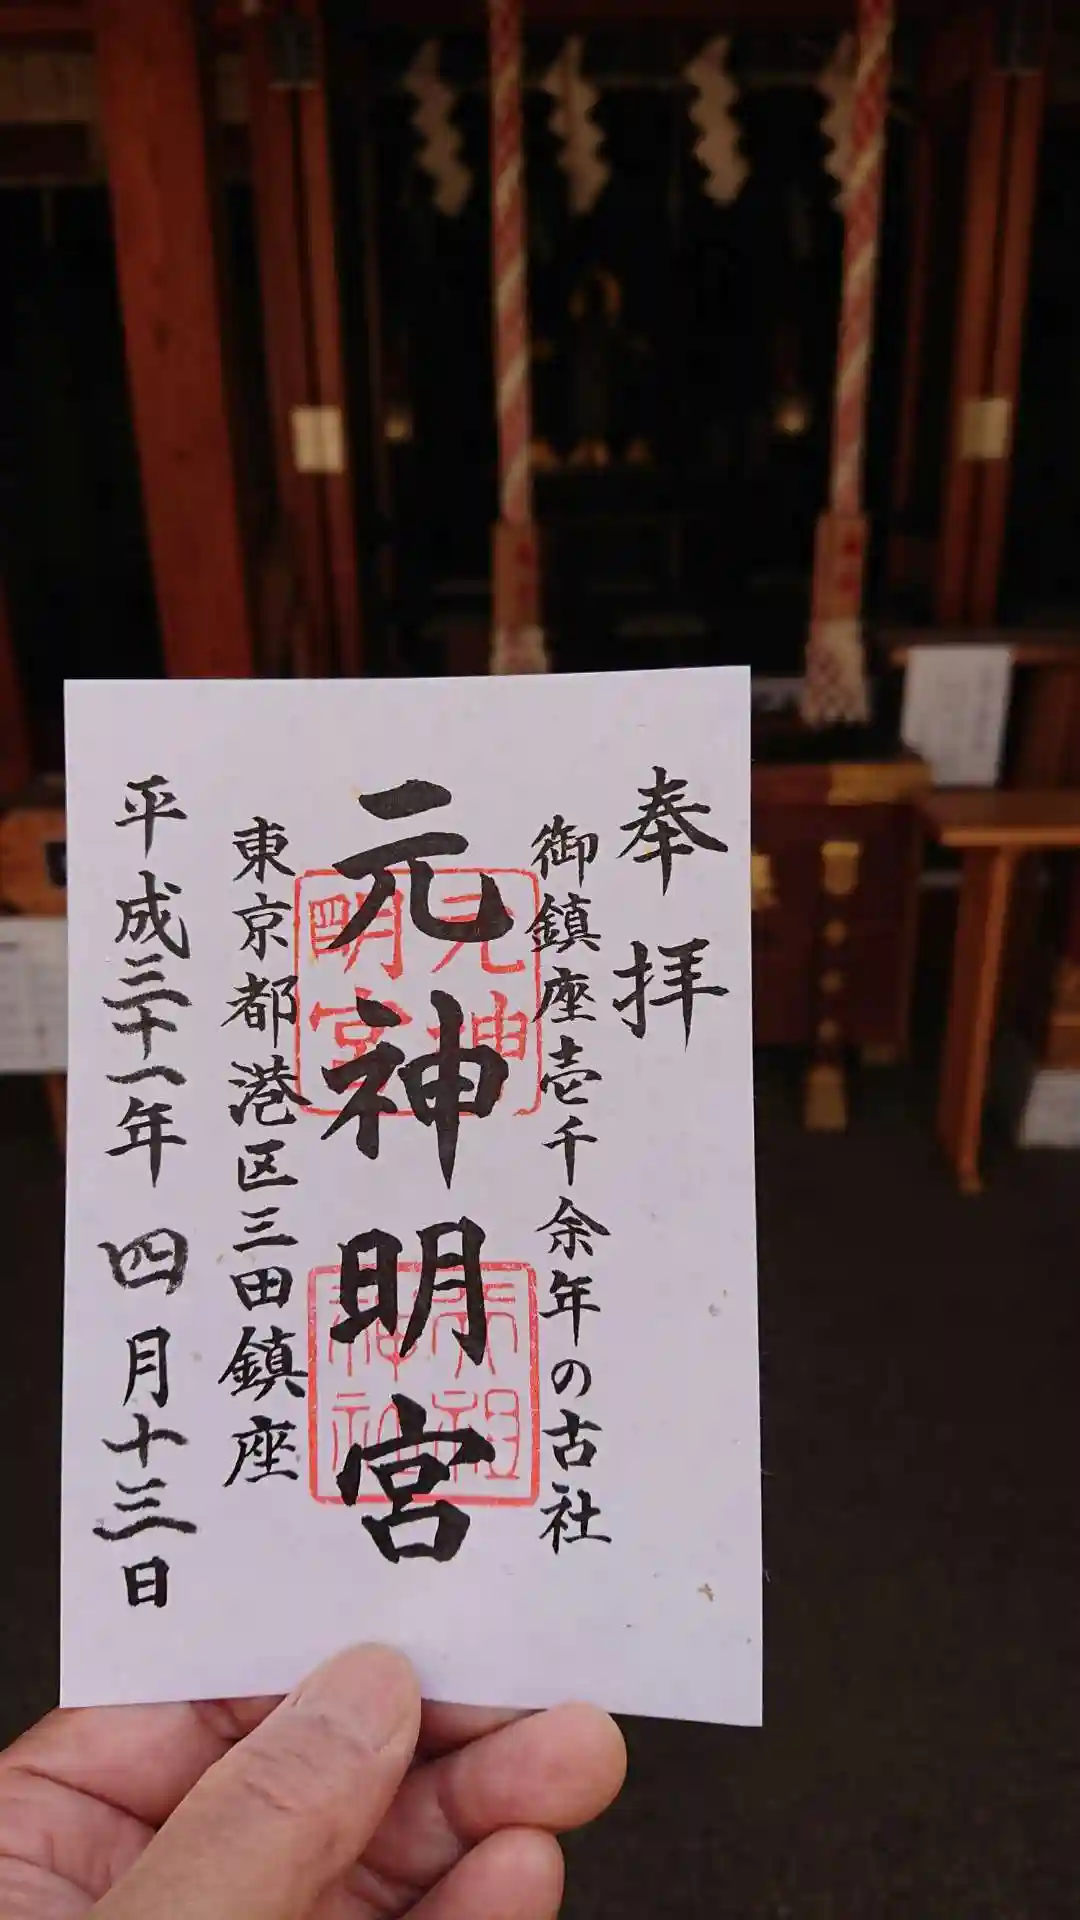 奉拝
御鎮座壱千余年の古社
元神明宮
元神明宮
天祖神社
東京都港区三田鎮座
平成三十一年 四月十三日